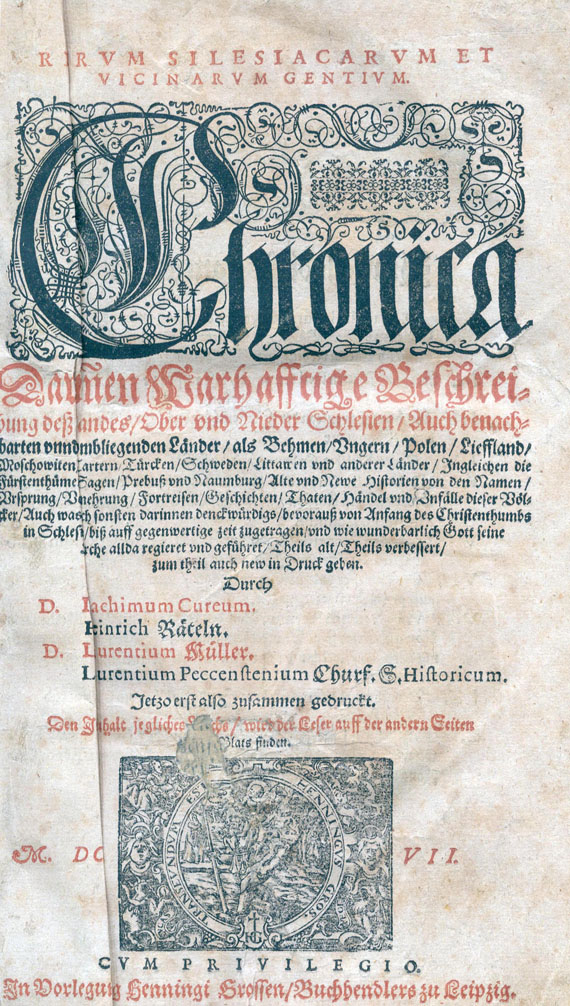 RERVM SILESIACARVM ET
VICINARVM GENTIVM.
Chronica
Darinnen Warhafftige Beschrei-
bung deß andes/Ober vnd Nieder Schlesien/Auch benach-
barten vnndmbliegenden Länder/als Behmen/Vngern/Polen/Lieffland/
Moschowiten artern/Türcken/Schweden/Littawen vnd anderer Länder/Ingleichen die
Fürstenthüme Sagen/Prebuß vnd Naumburg/Alte vnd Newe Historien von den Namen/
Vrsprung/Vnehrung/Fortreisen/Geschichten/Thaten/Händel vnd Vnfälle dieser Völ-
cker/Auch was ch sonsten darinnen denckwürdigs/bevorauß von Anfang des Christenthumbs
in Schlesi/biß auff gegenwertige zeit zugetragen/vnd wie wunderbarlich Gott seine
rche allda regieret vnd geführet/Theils alt/Theils verbessert/
zum theil auch new in Druck geben.
Durch
D. Iachimum Cureum.
Hinrich Räteln.
D. Lurentium Müller.
Lurentium Peccenstenium Churf. S. Historicum.
Jetzo erst also zusammen gedruckt.
Den Inhalt jegliches Buchs/wird der Leser auff der andern Seiten
Blats finden.
HENNINGVS GROS.
M. DC VII.
CVM PRIVILEGIO.
In Vorlegung Henningi Grossen/Buchhendlers zu Leipzig.